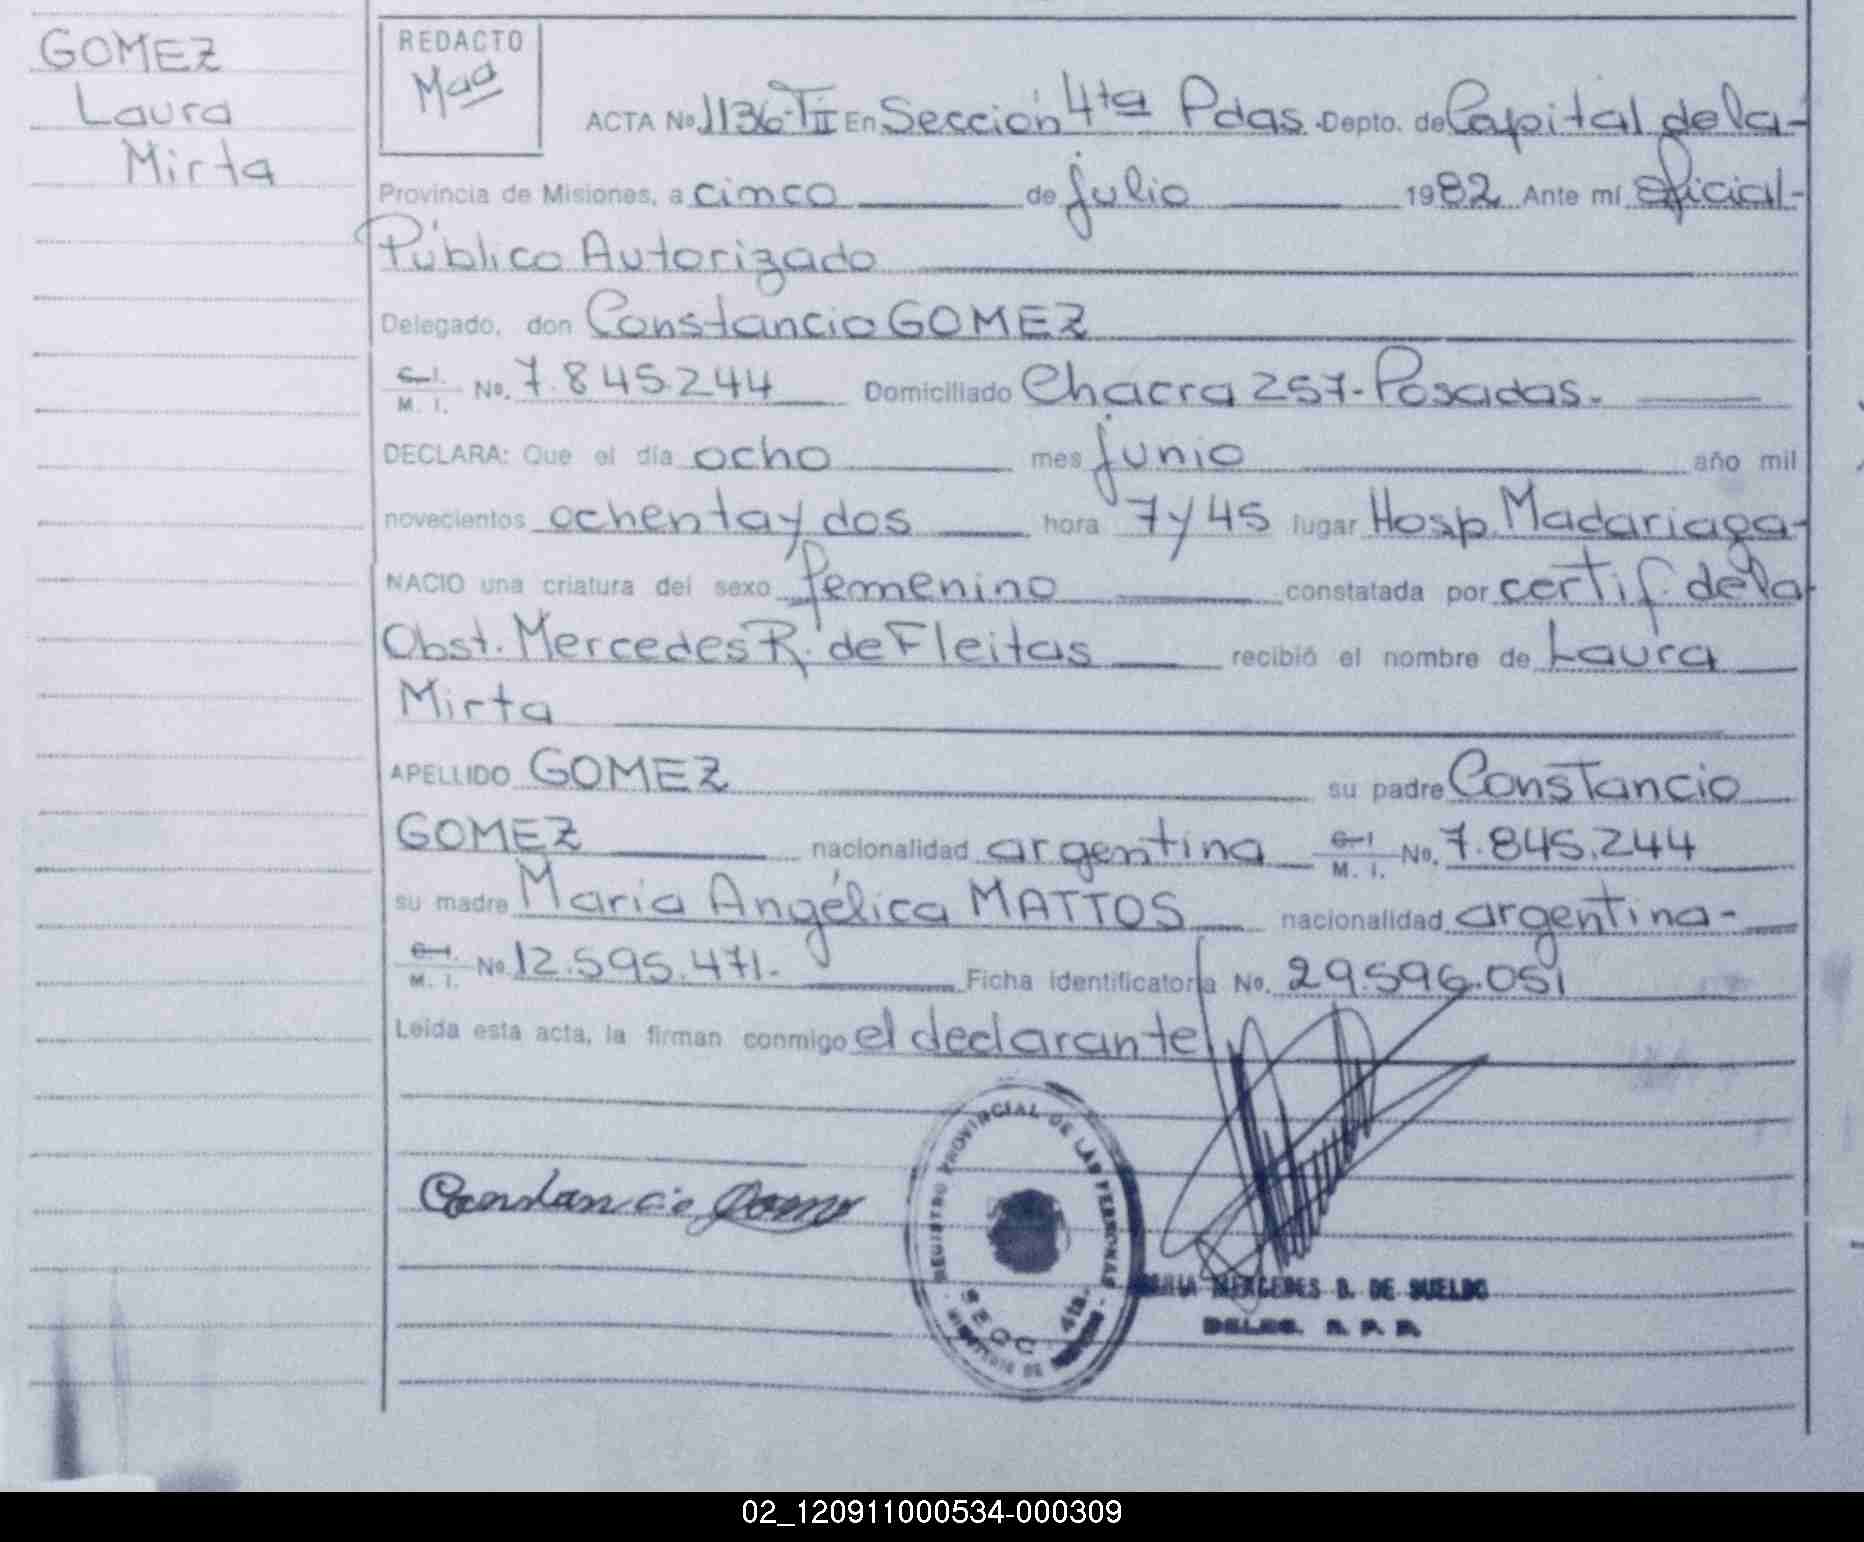 GOMEZ
Laura
Mirta
REDACTO
Maa
ACTA No 1136-TII En Sección 4ta Pdas. Depto. de Capital de la-
Provincia de Misiones, a cinco de julio 1982 Ante mí oficial-
Público Autorizado
Delegado, don Constancio GOMEZ
C.I. M. I. No. 7.845.244 Domiciliado Chacra 257-Posadas.
DECLARA: Que el día ocho mes junio año mil
novecientos ochenta y dos hora 7 y 45 lugar Hosp. Madariaga-
NACIO una criatura del sexo femenino constatada por certif. de la
Obst. Mercedes R. de Fleitas recibió el nombre de Laura
Mirta
APELLIDO GOMEZ su padre Constancio
GOMEZ nacionalidad argentina C.I. M. I. No. 7.845.244
su madre María Angélica MATTOS nacionalidad argentina-
C.I. M. I. No 12.595.471.- Ficha identificatoria No. 29.596.051
Leida esta acta, la firman conmigo el declarante
Constancio Gomez
REGISTRO PROVINCIAL DE LAS PERSONAS
SECC. 4ta.
MERCEDES B. DE SUELDO
DELEG. R. P. P.
02_120911000534-000309